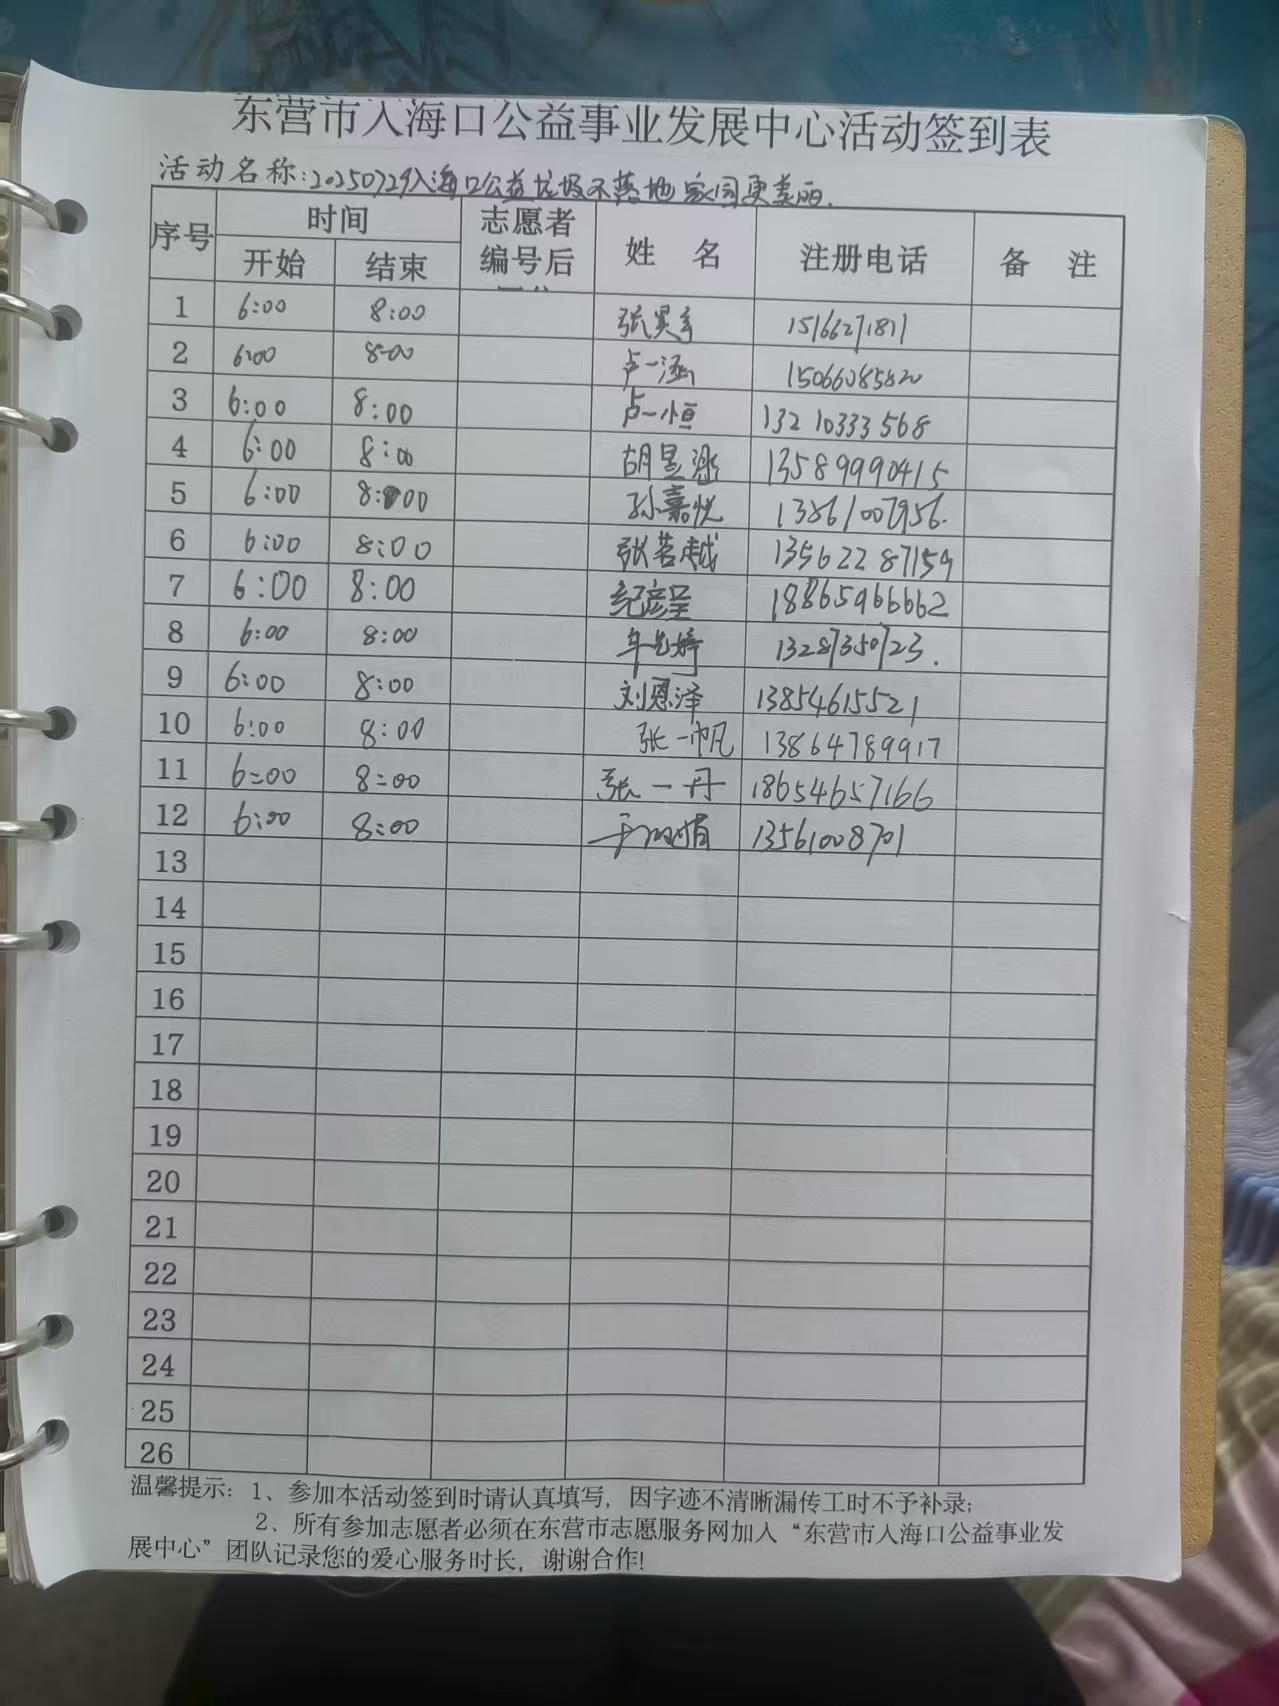 东营市入海口公益事业发展中心活动签到表
活动名称:20250729入海口公益垃圾不落地 家园更美丽.
序号 时间 志愿者编号后 姓 名 注册电话 备 注
开始 结束
1 6:00 8:00 张昊 15166271811
2 6:00 8:00 卢一涵 15066085820
3 6:00 8:00 卢一恒 13210333568
4 6:00 8:00 胡昱 13589990415
5 6:00 8:00 孙嘉悦 13861007956.
6 6:00 8:00 张若越 13562287159
7 6:00 8:00 纪彦呈 18865966662
8 6:00 8:00 牟 婷 13287350723.
9 6:00 8:00 刘恩泽 13854615521
10 6:00 8:00 张一帆 13864789917
11 6:00 8:00 张一丹 18654657166
12 6:00 8:00 于 娟 13561008701
13
14
15
16
17
18
19
20
21
22
23
24
25
26
温馨提示：1、参加本活动签到时请认真填写，因字迹不清晰漏传工时不予补录;
2、所有参加志愿者必须在东营市志愿服务网加入“东营市入海口公益事业发
展中心”团队记录您的爱心服务时长，谢谢合作!